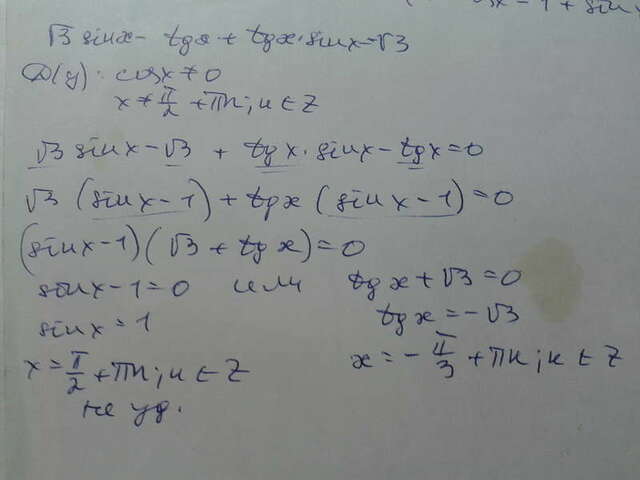 √3 sinx - tgx + tgx·sinx = √3
D(y): cosx ≠ 0
x ≠ π/2 + πn; n ∈ Z
√3 sinx - √3 + tgx·sinx - tgx = 0
√3 (sinx - 1) + tgx (sinx - 1) = 0
(sinx - 1)(√3 + tgx) = 0
sinx - 1 = 0 или tgx + √3 = 0
sinx = 1 tgx = -√3
x = π/2 + πn; n ∈ Z x = -π/3 + πn; n ∈ Z
не уд.